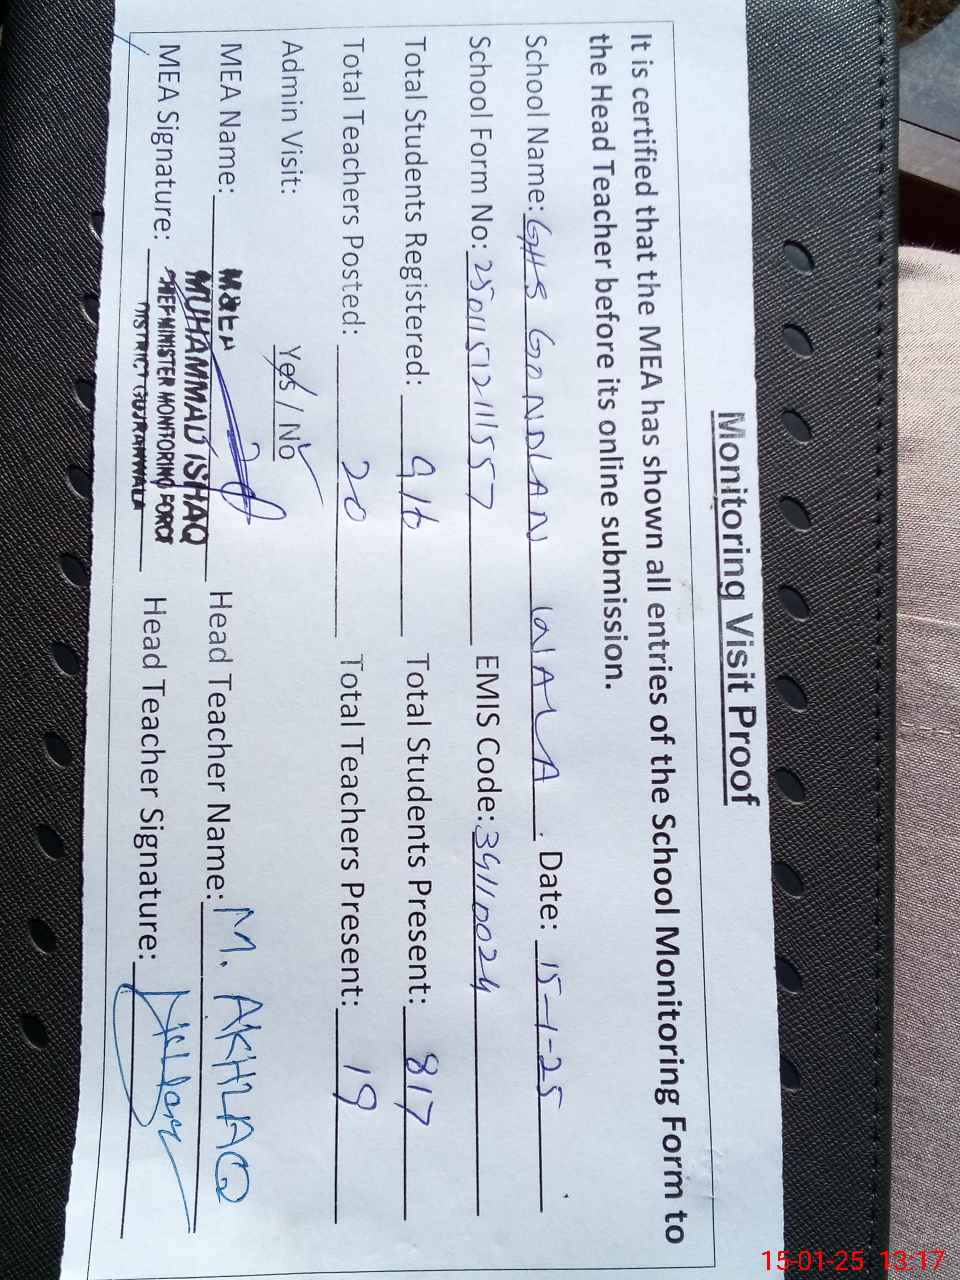 Monitoring Visit Proof
It is certified that the MEA has shown all entries of the School Monitoring Form to
the Head Teacher before its online submission.
School Name: GHS GONDLAN WALA. Date: 15-1-25
School Form No: 2501151211157 EMIS Code: 39110024
Total Students Registered: 916 Total Students Present: 817
Total Teachers Posted: 20 Total Teachers Present: 19
Admin Visit: Yes / No
MEA Name: MUHAMMAD ISHAQ Head Teacher Name: M. AKHLAQ
MEA Signature: CHIEF MINISTER MONITORING FORCE Head Teacher Signature:
DISTRICT GUJRANWALA
15-01-25 13:17